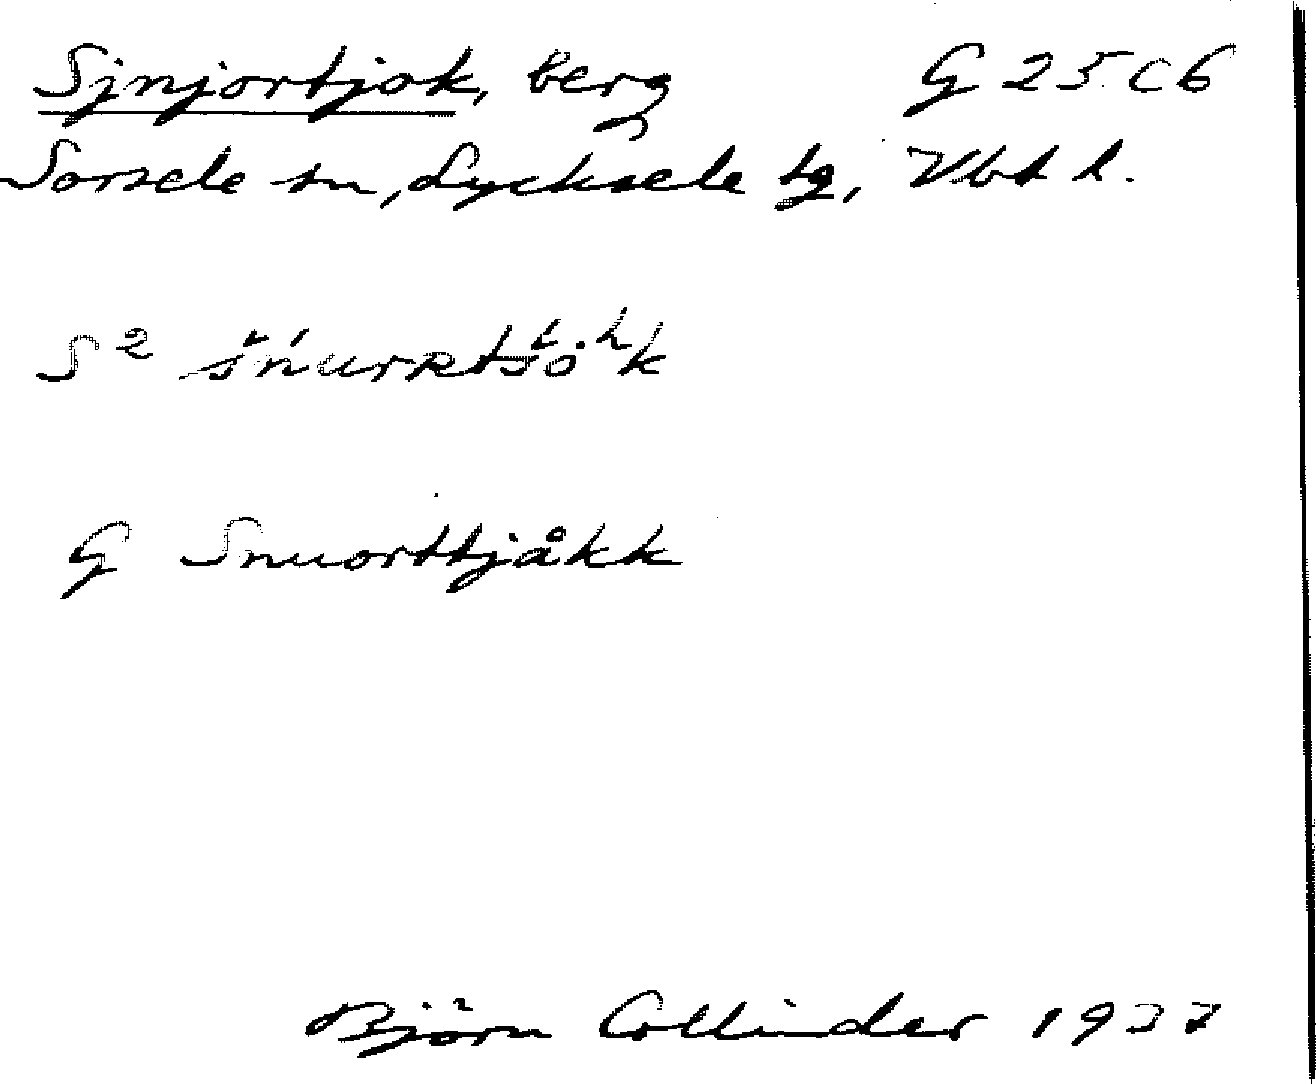 Sjnjortjok, berg G 25 C 6
Sorsele sn, Lycksele tg, Vbt l.
S²
G Snuorttjåkk
Björn Collinder 1937